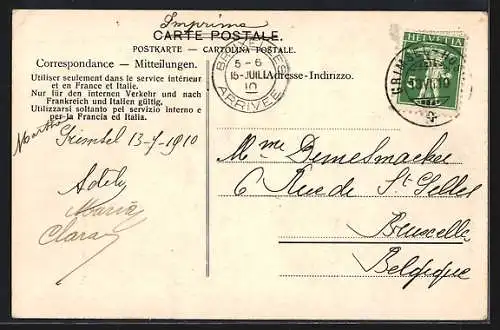 Imprimé
CARTE POSTALE.
POSTKARTE — CARTOLINA POSTALE.
Correspondance — Mitteilungen.
Adresse-Indirizzo.
Utiliser seulement dans le service intérieur
et en France et Italie.
Nur für den internen Verkehr und nach
Frankreich und Italien gültig.
Utilizzarsi soltanto pel servizio interno e
per la Francia ed Italia.
BRUXELLES
5-6
15-JUIL
10
ARRIVEE
HELVETIA
5
Marthe
Grimsel 13-7-1910
Maria
Clara
Mme Demesmacker
6 Rue de St Gilles
Bruxelles
Belgique